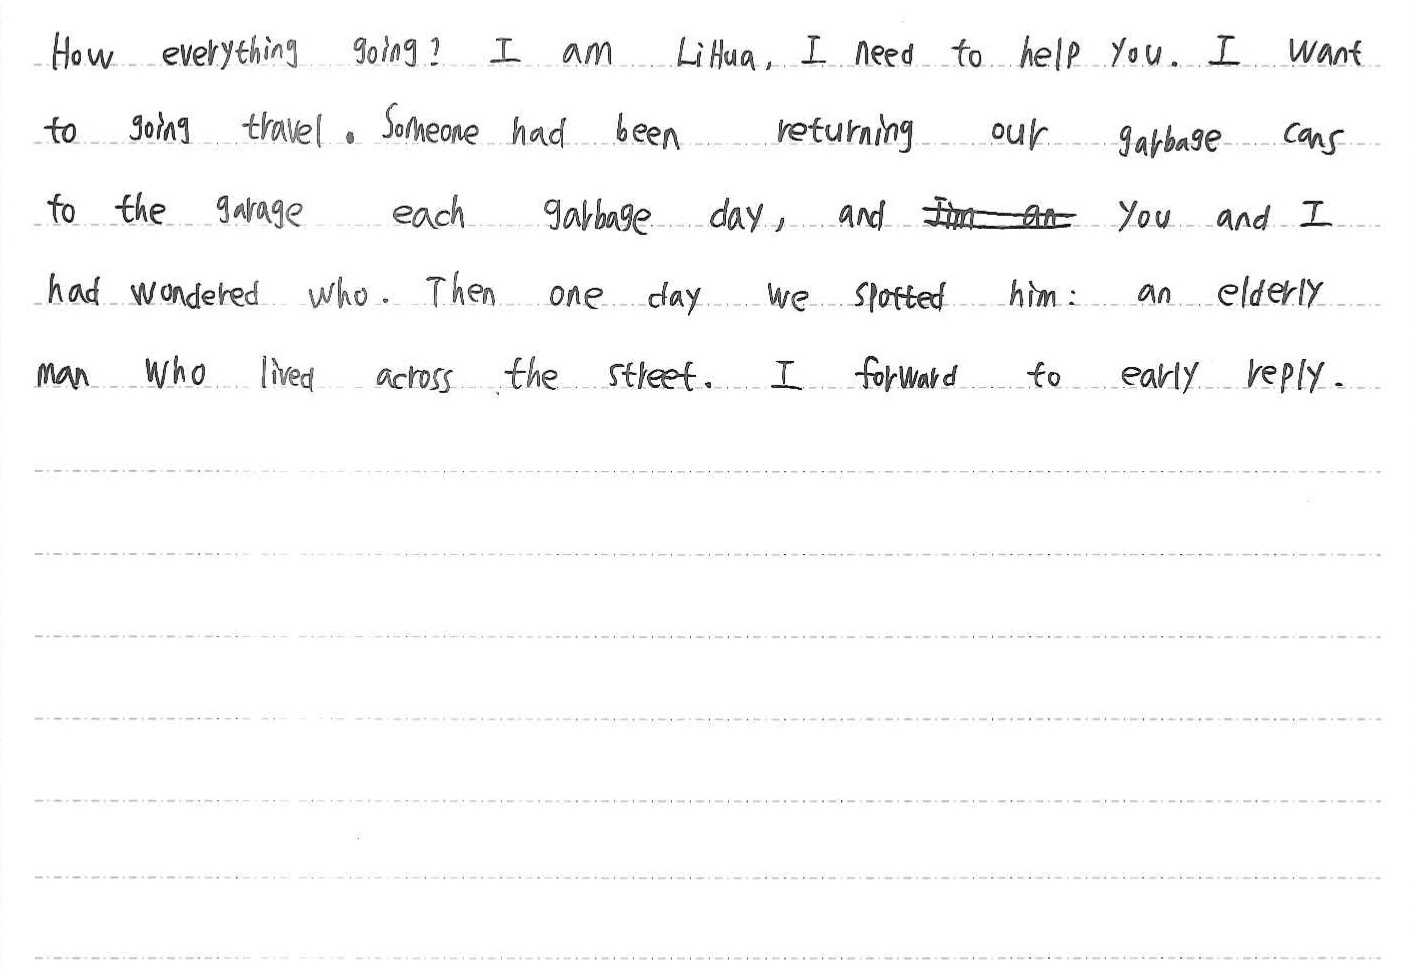 How everything going? I am LiHua, I need to help you. I want
to going travel. Someone had been returning our garbage cans
to the garage each garbage day, and Jim an you and I
had wondered who. Then one day we spotted him: an elderly
man who lived across the street. I forward to early reply.